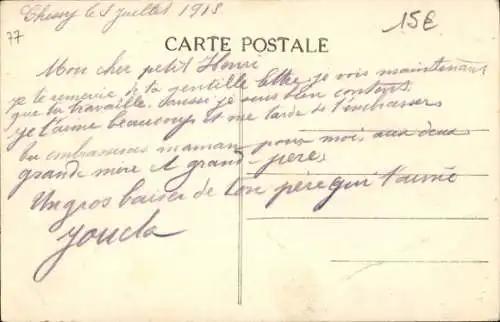 Chessy le 8 Juillet 1918
77
15€
CARTE POSTALE
Mon cher petit Henri
je te remercie de ta gentille lettre je vois maintenant
que tu travaille. Aussi je suis bien content
je t'aime beaucoup et me tarde de t'embrasser
tu embrasseras maman pour moi aux deux
grande mère et grand-père,
Un gros baiser de ton père qui t'aime